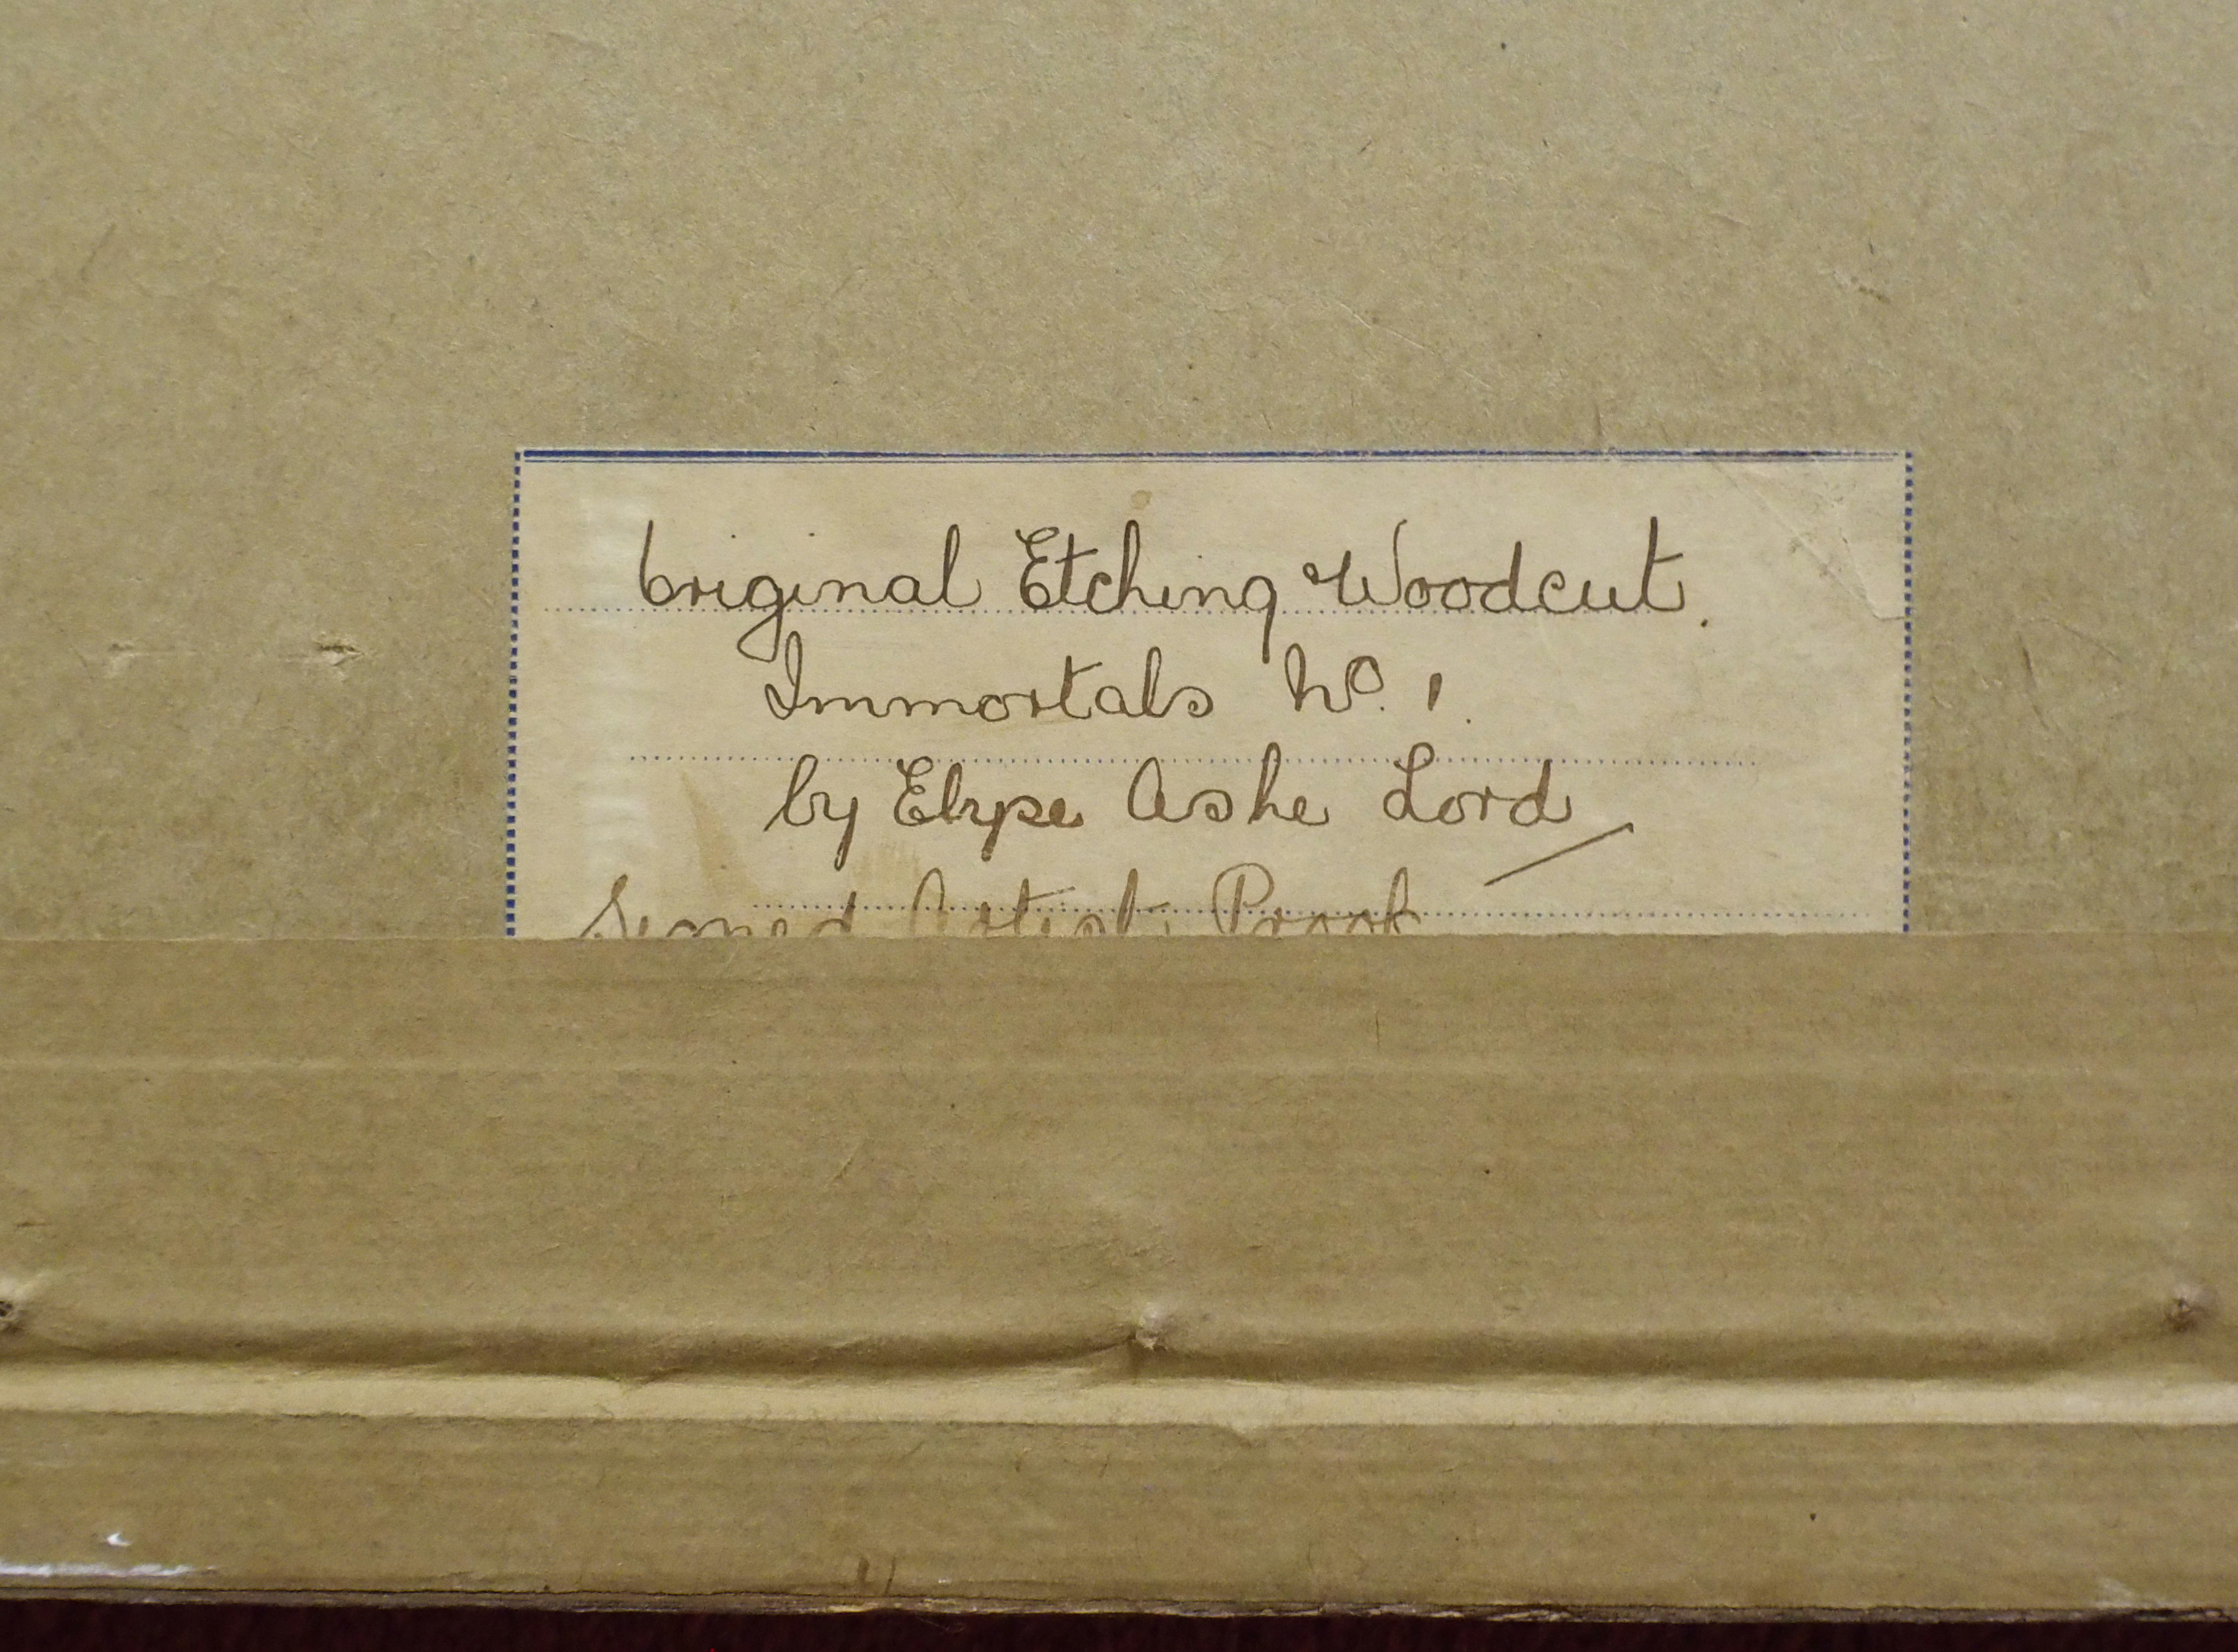 Original Etching Woodcut.
Immortals No. 1.
by Elyse Ashe Lord
Signed Artist's Proof